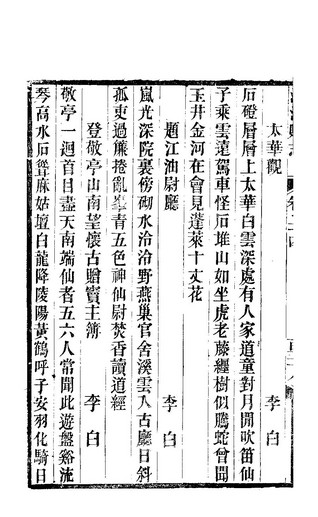 太華觀 李白
石磴層層上太華白雲深處有人家道童對月閒吹笛仙
子乘雲遠駕車怪石堆山如坐虎老藤纏樹似騰蛇曾聞
玉井金河在會見蓬萊十丈花
題江油尉廳 李白
嵐光深院裏傍砌水泠泠野燕巢官舍溪雲入古廳日斜
孤吏過簾捲亂峯青五色神仙尉焚香讀道經
登敬亭山南望懷古贈竇主簿 李白
敬亭一迴首目盡天南端仙者五六人常聞此遊盤谿流
琴高水石聳麻姑壇白龍降陵陽黃鶴呼子安羽化騎日